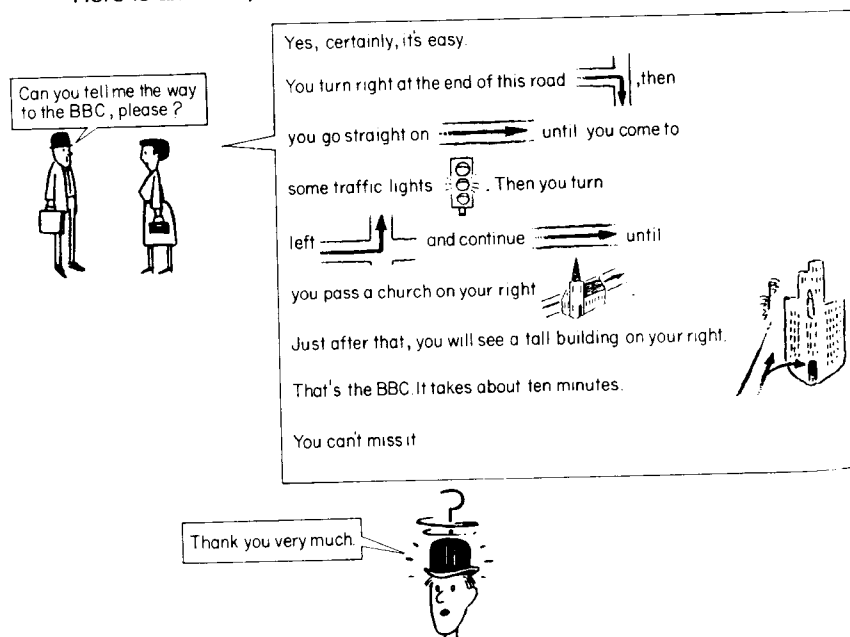 Can you tell me the way
to the BBC, please?
Yes, certainly, it's easy.
You turn right at the end of this road , then
you go straight on until you come to
some traffic lights . Then you turn
left and continue until
you pass a church on your right .
Just after that, you will see a tall building on your right.
That's the BBC. It takes about ten minutes.
You can't miss it
?
Thank you very much.